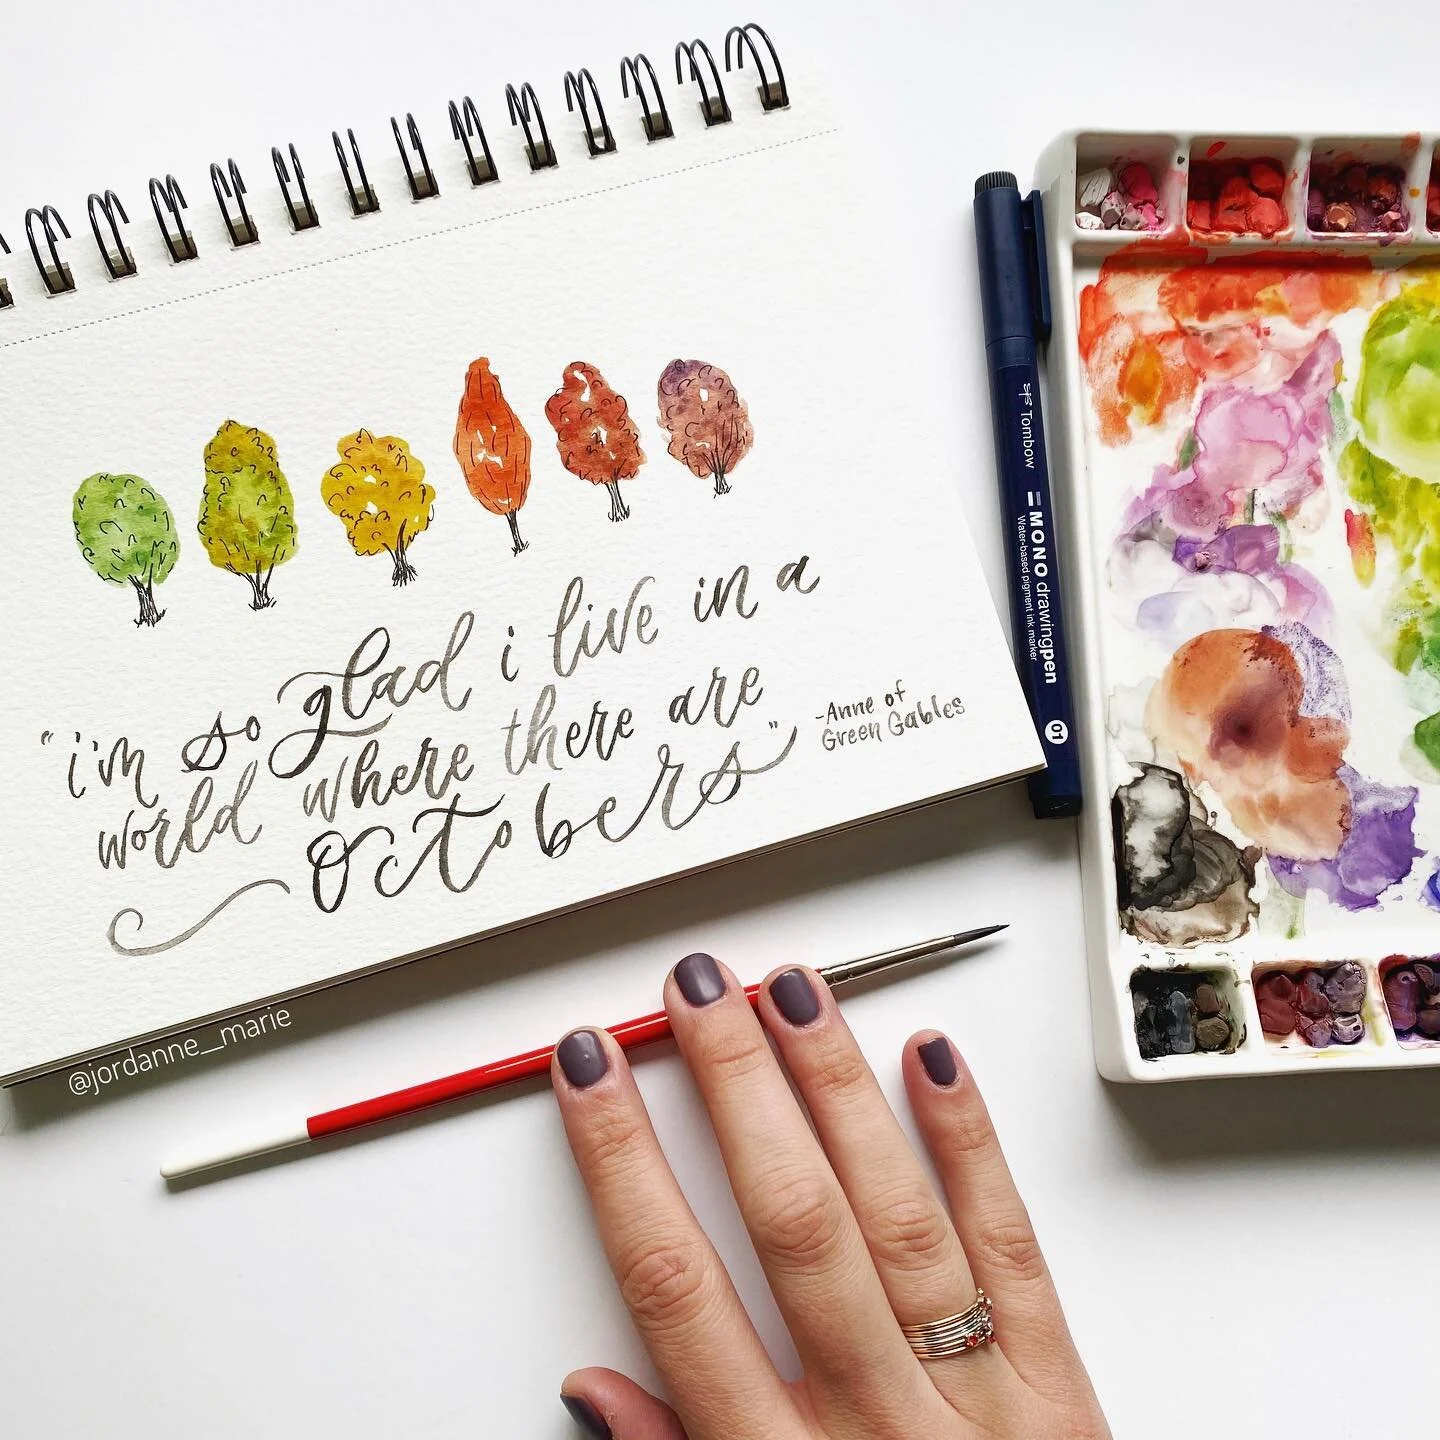 "i'm so glad i live in a
world where there are
Octobers"
-Anne of
Green Gables
@jordanne__marie
Tombow
MONO drawingpen
Water-based pigment ink marker
01